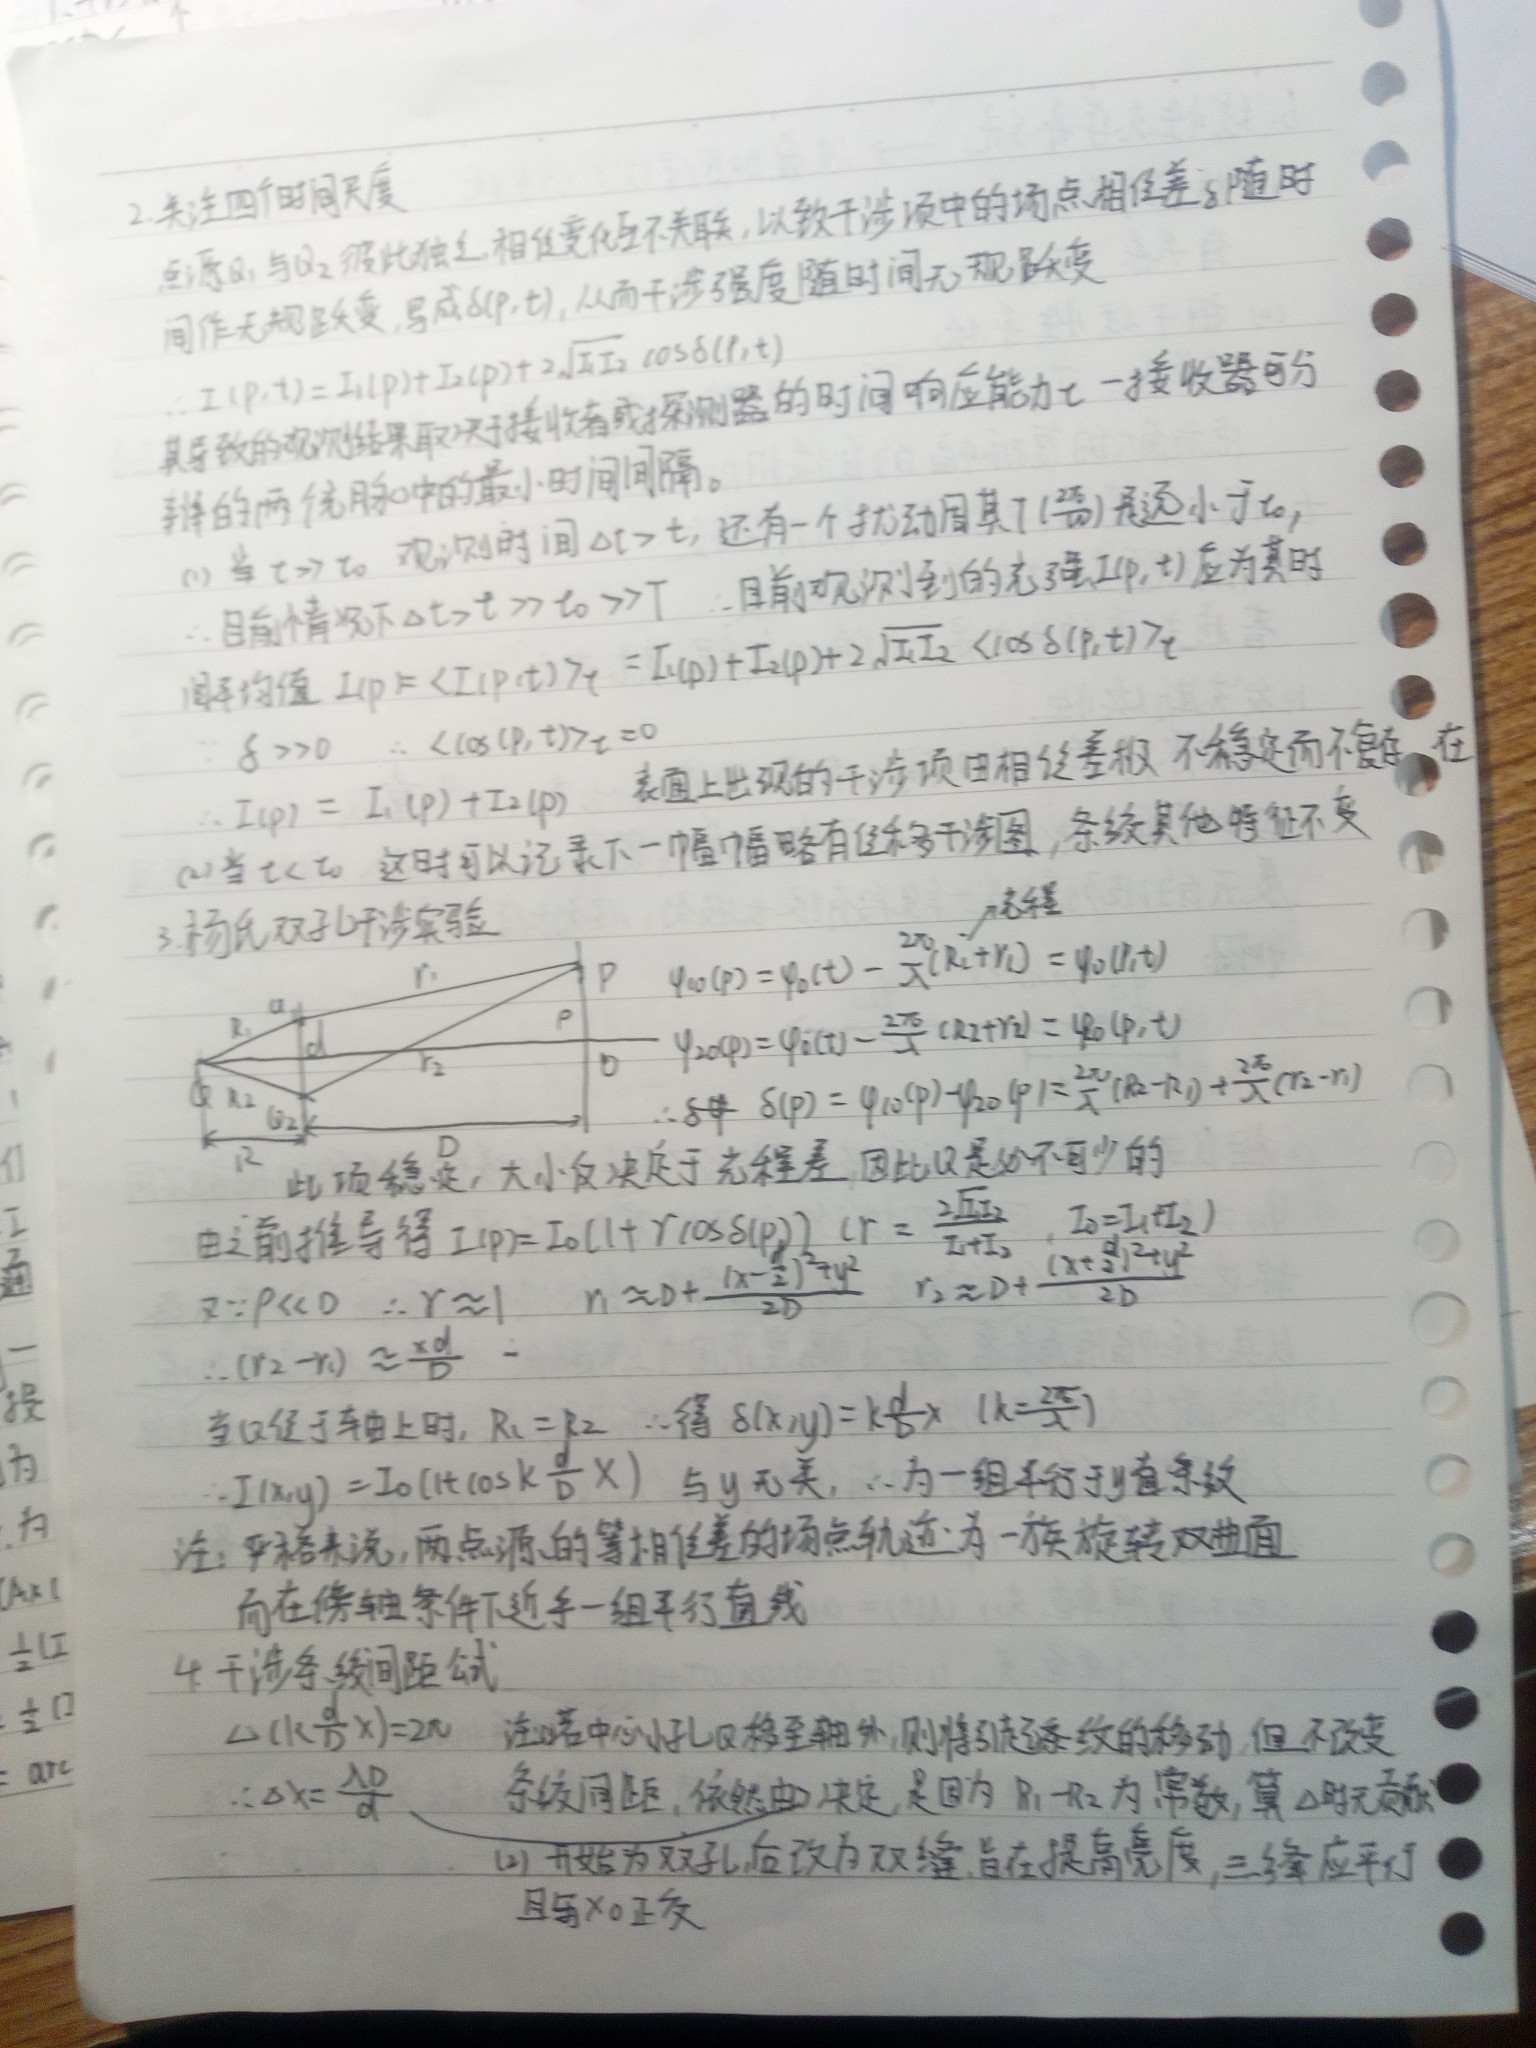 2.关注四个时间尺度
点源Q₁与Q₂彼此独立,相位变化互不关联,以致干涉项中的场点相位差δ随时
间作无规跃变,写成δ(p,t),从而干涉强度随时间无规跃变
∴I(p,t)=I₁(p)+I₂(p)+2√I₁I₂ cosδ(p,t)
其导致的观测结果取决于接收者或探测器的时间响应能力t 一接收器可分
辨的两个光脉冲的最小时间间隔。
(1) 当t>>t₀ 观测时间Δt>t, 还有一个扰动周期T(2π/ω)是远小于t₀,
∴目前情况下Δt>t>>t₀>>T ∴目前观测到的光强I(p,t)应为其时
间平均值 I(p)=<I(p,t)>t =I₁(p)+I₂(p)+2√I₁I₂ <cosδ(p,t)>t
∵ δ>>0 ∴<cos(p,t)>t=0
∴I(p) = I₁(p)+I₂(p) 表面上出现的干涉项由相位差极不稳定而不复存在
(2)当t<t₀ 这时可以记录下一幅幅略有位移干涉图,条纹其他特征不变
3.杨氏双孔干涉实验
光程
r₁ P φ₁₀(p)=φ₀(t)-2π/λ(R₁+r₁)=φ₀(p,t)
R₁ d ρ
r₂ O φ₂₀(p)=φ₀(t)-2π/λ(R₂+r₂)=φ₀(p,t)
Q R₂ Q₂ ∴ δ(p)=φ₁₀(p)-φ₂₀(p)=2π/λ(R₂-R₁)+2π/λ(r₂-r₁)
R D
此项稳定,大小仅决定于光程差,因此Q是必不可少的
由之前推导得 I(p)=I₀(1+γcosδ(p)) (γ=2√I₁I₂/(I₁+I₂), I₀=I₁+I₂)
又∵ρ<<D ∴γ≈1 r₁≈D+((x-d/2)²+y²)/2D r₂≈D+((x+d/2)²+y²)/2D
∴(r₂-r₁)≈xd/D
当Q位于轴上时, R₁=R₂ ∴得 δ(x,y)=k d/D x (k=2π/λ)
∴I(x,y)=I₀(1+cosk d/D x) 与y无关, ∴为一组平行于y直条纹
注: 严格来说,两点源的等相位差的场点轨迹为一族旋转双曲面
而在傍轴条件下近乎一组平行直线
4.干涉条纹间距公式
Δ(k d/D x)=2π 注:(1)若中心小孔Q移至轴外,则将引起条纹的移动,但不改变
∴Δx=λD/d 条纹间距,依然由 决定,是因为R₁-R₂为常数,算Δ时无贡献
(2) 开始为双孔,后改为双缝,旨在提高亮度,三缝应平行
且与x₀正交